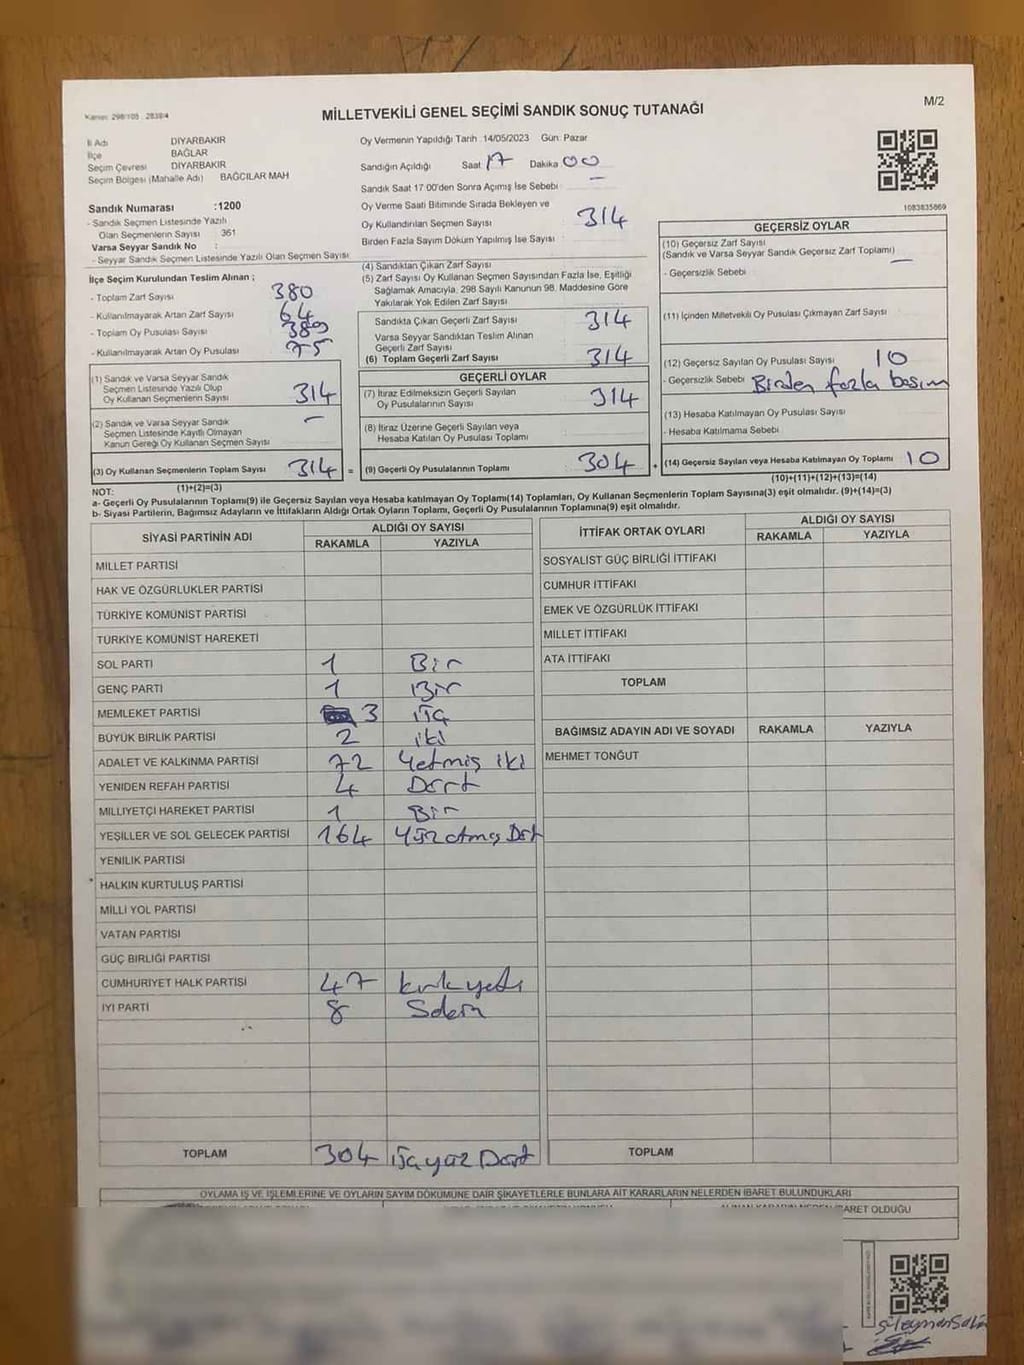 Kanun: 298/105 , 2839/4
MİLLETVEKİLİ GENEL SEÇİMİ SANDIK SONUÇ TUTANAĞI
M/2
İl Adı DİYARBAKIR
İlçe BAĞLAR
Seçim Çevresi DİYARBAKIR
Seçim Bölgesi (Mahalle Adı) BAĞCILAR MAH
Oy Vermenin Yapıldığı Tarih 14/05/2023 Gün: Pazar
Sandığın Açıldığı Saat 17 Dakika 00
Sandık Saat 17 00'den Sonra Açımış İse Sebebi
Oy Verme Saati Bitiminde Sırada Bekleyen ve
Oy Kullandırılan Seçmen Sayısı 314
Birden Fazla Sayım Döküm Yapılmış İse Sayısı
Sandık Numarası :1200
- Sandık Seçmen Listesinde Yazılı
Olan Seçmenlerin Sayısı 361
Varsa Seyyar Sandık No :
- Seyyar Sandık Seçmen Listesinde Yazılı Olan Seçmen Sayısı
1083835869
İlçe Seçim Kurulundan Teslim Alınan ;
- Toplam Zarf Sayısı 380
- Kullanılmayarak Artan Zarf Sayısı 64
- Toplam Oy Pusulası Sayısı 389
- Kullanılmayarak Artan Oy Pusulası 75
(1) Sandık ve Varsa Seyyar Sandık
Seçmen Listesinde Yazılı Olup
Oy Kullanan Seçmenlerin Sayısı 314
(2) Sandık ve Varsa Seyyar Sandık
Seçmen Listesinde Kayıtlı Olmayan
Kanun Gereği Oy Kullanan Seçmen Sayısı –
(3) Oy Kullanan Seçmenlerin Toplam Sayısı 314 =
(1)+(2)=(3)
(4) Sandıktan Çıkan Zarf Sayısı
(5) Zarf Sayısı Oy Kullanan Seçmen Sayısından Fazla İse, Eşitliği
Sağlamak Amacıyla, 298 Sayılı Kanunun 98. Maddesine Göre
Yakılarak Yok Edilen Zarf Sayısı
Sandıkta Çıkan Geçerli Zarf Sayısı 314
Varsa Seyyar Sandıktan Teslim Alınan
Geçerli Zarf Sayısı
(6) Toplam Geçerli Zarf Sayısı 314
GEÇERLİ OYLAR
(7) İtiraz Edilmeksizin Geçerli Sayılan
Oy Pusulalarının Sayısı 314
(8) İtiraz Üzerine Geçerli Sayılan veya
Hesaba Katılan Oy Pusulası Toplamı
(9) Geçerli Oy Pusulalarının Toplamı 304 +
GEÇERSİZ OYLAR
(10) Geçersiz Zarf Sayısı
(Sandık ve Varsa Seyyar Sandık Geçersiz Zarf Toplamı) –
- Geçersizlik Sebebi
(11) İçinden Milletvekili Oy Pusulası Çıkmayan Zarf Sayısı
(12) Geçersiz Sayılan Oy Pusulası Sayısı 10
- Geçersizlik Sebebi Birden fazla basım
(13) Hesaba Katılmayan Oy Pusulası Sayısı
- Hesaba Katılmama Sebebi
(14) Geçersiz Sayılan veya Hesaba Katılmayan Oy Toplamı 10
(10)+(11)+(12)+(13)=(14)
NOT:
a- Geçerli Oy Pusulalarının Toplamı(9) ile Geçersiz Sayılan veya Hesaba katılmayan Oy Toplamı(14) Toplamları, Oy Kullanan Seçmenlerin Toplam Sayısına(3) eşit olmalıdır. (9)+(14)=(3)
b- Siyasi Partilerin, Bağımsız Adayların ve İttifakların Aldığı Ortak Oyların Toplamı, Geçerli Oy Pusulalarının Toplamına(9) eşit olmalıdır.
SİYASİ PARTİNİN ADI ALDIĞI OY SAYISI
RAKAMLA YAZIYLA
MİLLET PARTİSİ
HAK VE ÖZGÜRLÜKLER PARTİSİ
TÜRKİYE KOMÜNİST PARTİSİ
TÜRKİYE KOMÜNİST HAREKETİ
SOL PARTİ 1 Bir
GENÇ PARTİ 1 Bir
MEMLEKET PARTİSİ 3 üç
BÜYÜK BİRLİK PARTİSİ 2 iki
ADALET VE KALKINMA PARTİSİ 72 Yetmiş iki
YENİDEN REFAH PARTİSİ 4 Dört
MİLLİYETÇİ HAREKET PARTİSİ 1 Bir
YEŞİLLER VE SOL GELECEK PARTİSİ 164 Yüz atmış Dört
YENİLİK PARTİSİ
HALKIN KURTULUŞ PARTİSİ
MİLLİ YOL PARTİSİ
VATAN PARTİSİ
GÜÇ BİRLİĞİ PARTİSİ
CUMHURİYET HALK PARTİSİ 47 kırk yedi
İYİ PARTİ 8 Sekiz
TOPLAM 304 üçyüz Dört
İTTİFAK ORTAK OYLARI ALDIĞI OY SAYISI
RAKAMLA YAZIYLA
SOSYALİST GÜÇ BİRLİĞİ İTTİFAKI
CUMHUR İTTİFAKI
EMEK VE ÖZGÜRLÜK İTTİFAKI
MİLLET İTTİFAKI
ATA İTTİFAKI
TOPLAM
BAĞIMSIZ ADAYIN ADI VE SOYADI RAKAMLA YAZIYLA
MEHMET TONĞUT
TOPLAM
OYLAMA İŞ VE İŞLEMLERİNE VE OYLARIN SAYIM DÖKÜMÜNE DAİR ŞİKAYETLERLE BUNLARA AİT KARARLARIN NELERDEN İBARET BULUNDUKLARI
İBARET OLDUĞU